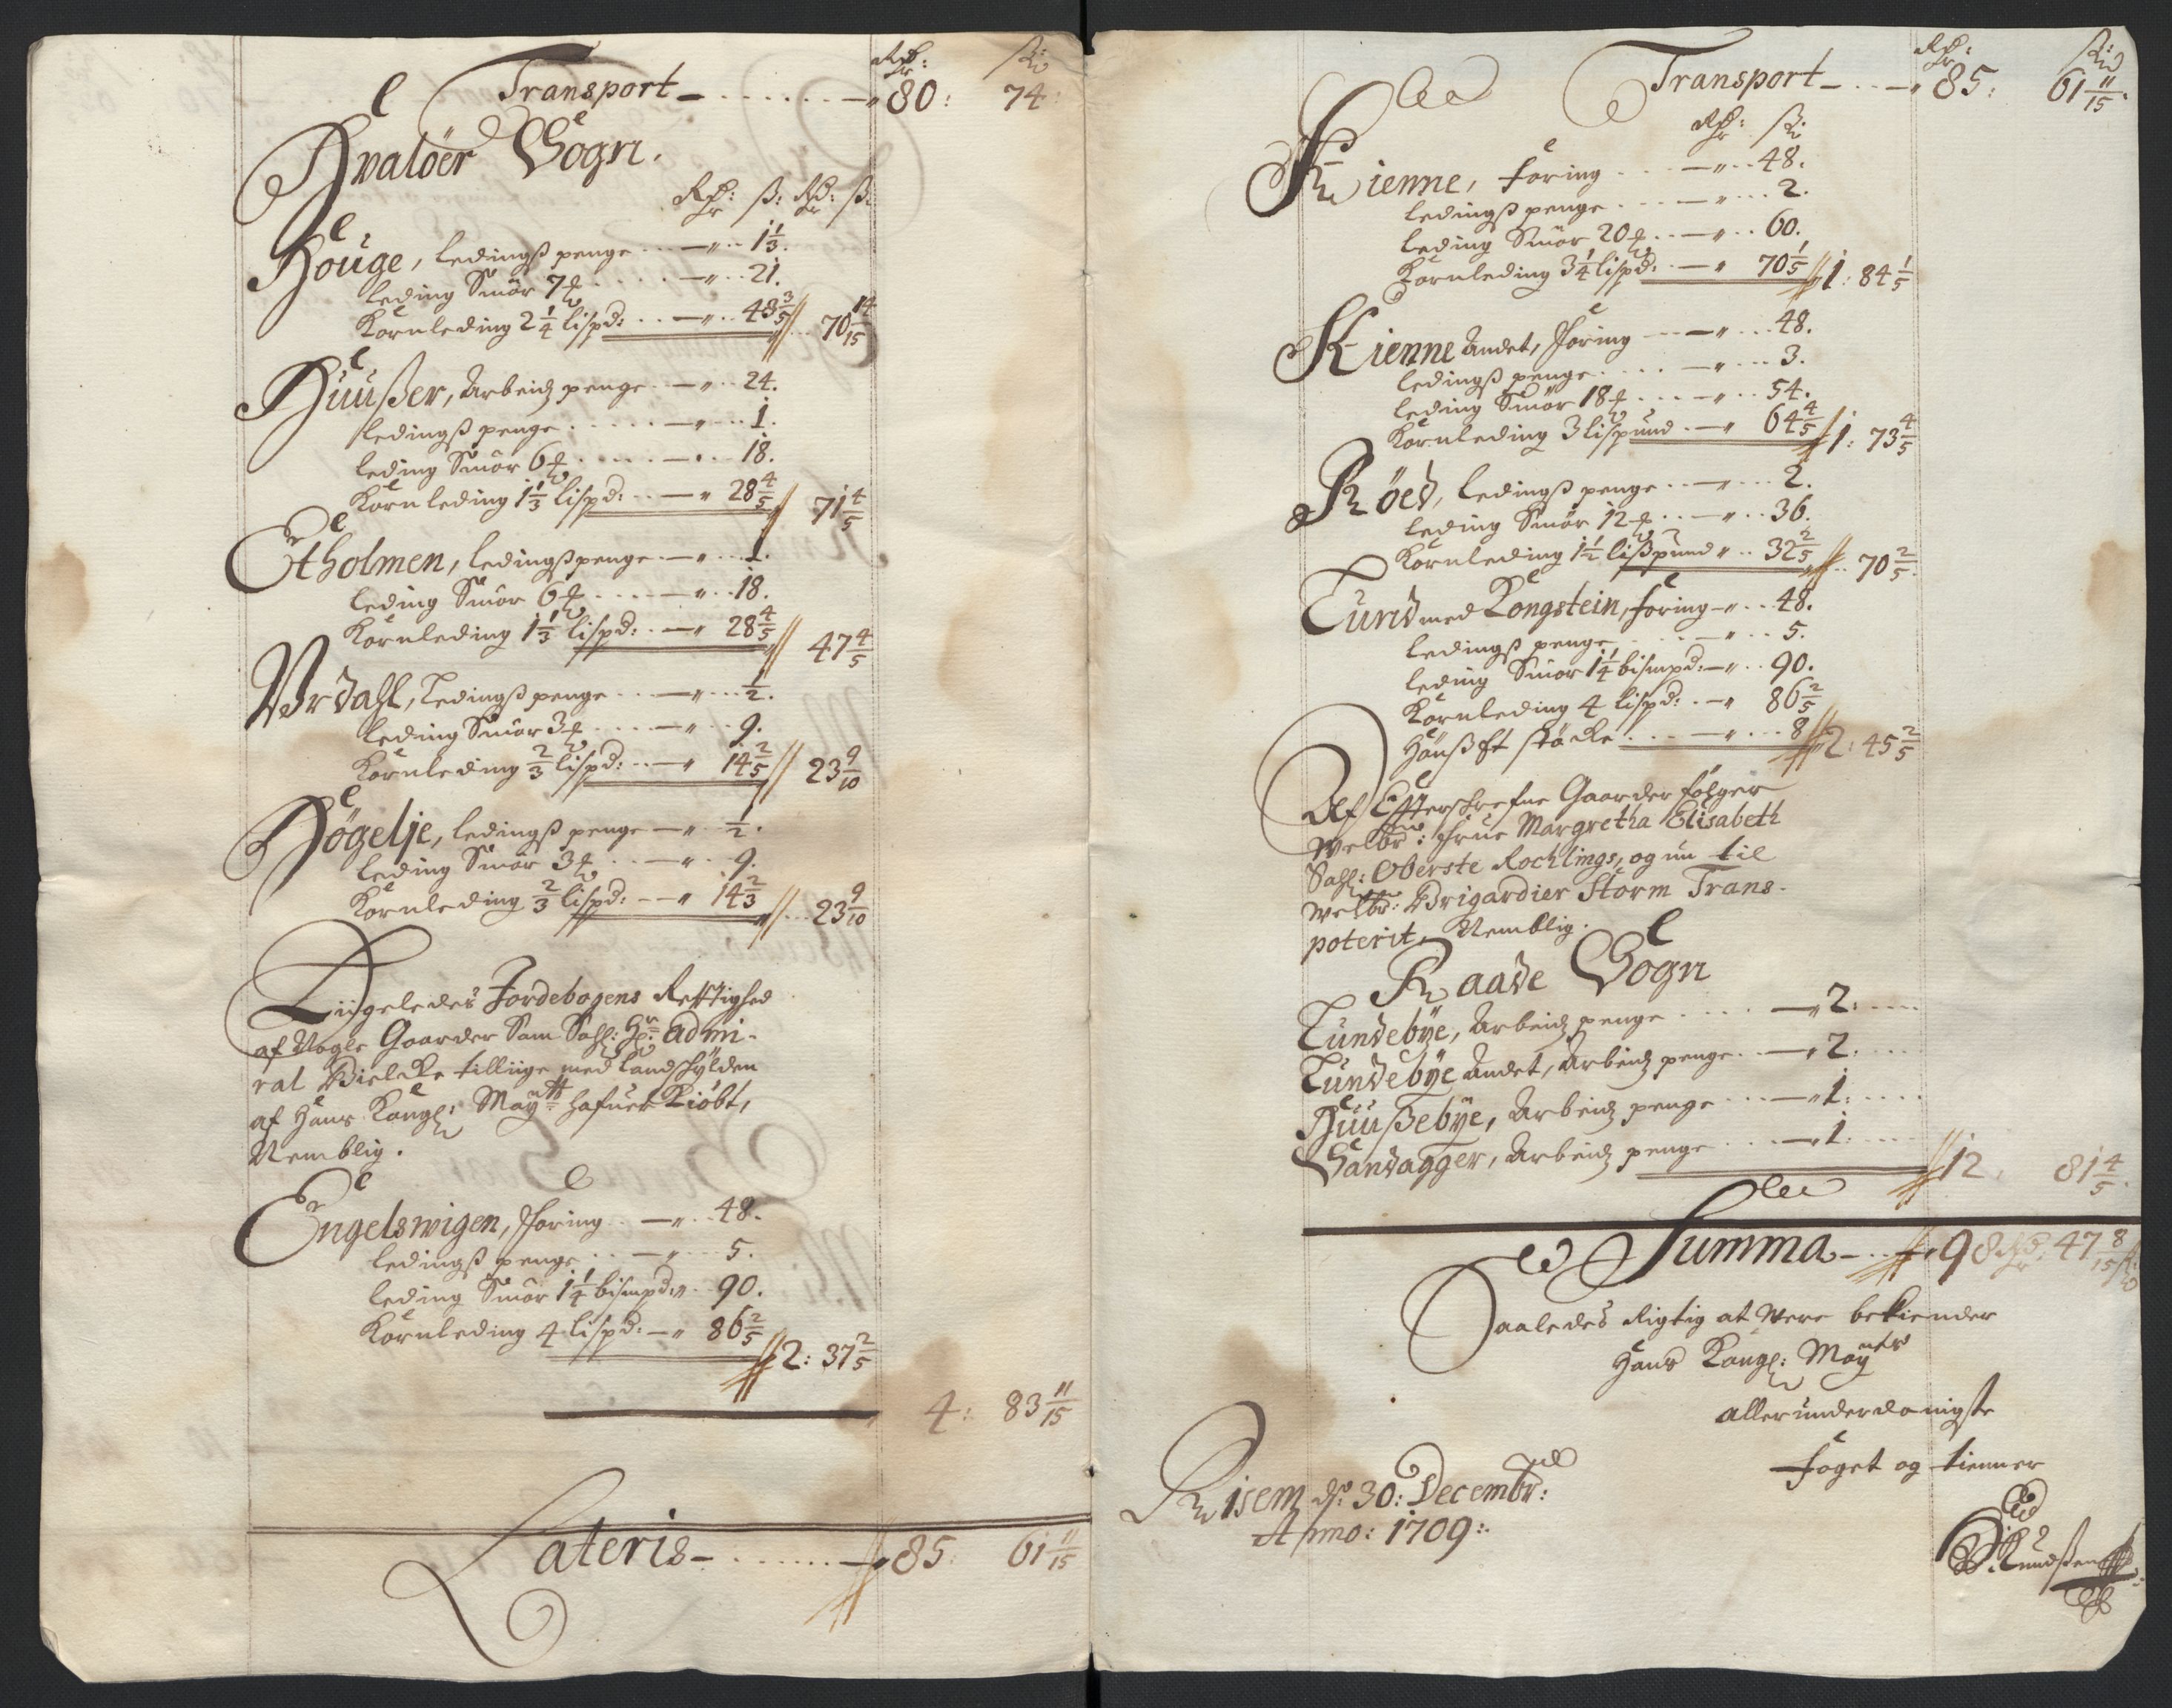 Rdr: ß:
Transport - - - 80: 74:
Hvalöer Sogn.
Rdr: ß: Rdr: ß:
Houge, ledingß penge - - - 1 1/3.
leding Smör 7 ℔ - - - 21.
Kornleding 2 1/4 lispd: - - - 48 3/5 // 70 14/15
Huußer, Arbeidz penge - - - 24.
ledingß penge - - - 1.
leding Smör 6 ℔ - - - 18.
Kornleding 1 1/3 lispd: - - - 28 4/5 // 71 4/5
Etholmen, ledingßpenge - - - 1.
leding Smör 6 ℔ - - - 18.
Kornleding 1 1/3 lispd: - - - 28 4/5 // 47 4/5
Urdahl, Ledingß penge - - - 1/2.
leding Smör 3 ℔ - - - 9.
Kornleding 2/3 lispd: - - - 14 2/5 // 23 9/10
Högelje, ledingß penge - - - 1/2.
leding Smör 3 ℔ - - - 9.
Kornleding 2/3 lispd: - - - 14 2/3 // 23 9/10
Liigeledes Jordebogens Rettighed
af Nogle Gaarder Som Sahl: Hr: Admi-
ral Bielcke tilliige med Landschylden
af Hans Kongl: Maytt hafuer Kiöbt,
Nemblig.
Engelswigen, Foring - - - 48.
ledingß penge - - - 5.
leding Smör 1 1/4 bismpd: - 90.
Kornleding 4 lispd: - 86 2/5 // 2: 37 2/5
4: 83 11/15
Lateris - - - 85: 61 11/15
Rdr: ß:
Transport - - - 85: 61 11/15.
Rdr: ß:
Kienne, foring - - - 48.
ledingß penge - - - 2.
leding Smör 20 ℔ - - - 60.
Kornleding 3 1/4 lispd: - 70 1/5 // 1: 84 1/5
Kienne Andet, Foring - - - 48.
ledingß penge - - - 3.
leding Smör 18 ℔ - - - 54.
Kornleding 3 lispund - - 64 4/5 // 1: 73 4/5
Röed, ledingß penge - - - 2.
leding Smör 12 ℔ - - - 36.
Kornleding 1 1/2 lißpund - - 32 2/5 // 70 2/5.
Lund med Kongstein, foring - - - 48.
ledingß penge - - - 5.
leding Smör 1 1/4 bismpd: - 90.
Kornleding 4 lispd: - 86 2/5
- - - 8 // 2: 45 2/5
Af Efterschrefne Gaarder fölger
Welbr: Frue Margretha Elisabeth
Sahl: Oberste Rochlings, og nu til
Welbr: Brigardier Storm Trans-
porterit, Nemblig.
Raade Sogn
Lundebÿe, Arbeidz penge - - - 2: - - -
Lundebÿe Andet, Arbeidz penge - - 2: - - -
Huußebÿe, Arbeidz penge - - - 1: - - -
Sandagger, Arbeidz penge - - - 1: - - - // 12. 81 4/5.
Summa - - - 98 Rdr: 47 8/15 ß
Saaledes Rigtig at Were bekiender
Hans Kongl: Mayts
allerunderdanigste
foget og tienner
Risem ds: 30: Decembr:
Anno: 1709:
Knudßen